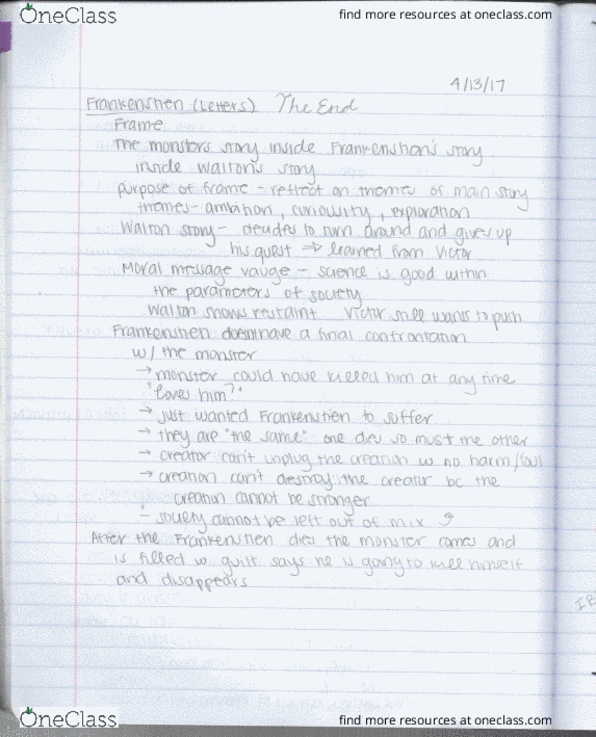 OneClass
find more resources at oneclass.com
4/13/17
Frankenshen (Letters) The End
Frame
The monstors story inside Frankenshon's story
inside Walton's story
purpose of frame - reflect on themes of main story
themes - ambition, curiousity, exploration
Walton story - decides to turn around and gives up
his quest → learned from Victor
Moral message vauge - science is good within
the parameters of society
Walton shows restraint Victor still wants to push
Frankeinshen doesnt have a final confrontation
w/ the monster
→ monster could have killed him at any time
"loves him?"
→ just wanted Frankenstien to suffer
→ they are "the same" one dies so must the other
→ creator can't unplug the creation w no harm/
→ creation can't destroy the creator bc the
creation cannot be stronger
- society cannot be left out of mix
After the Frankenstien dies the monster comes and
is filled w guilt says he is going to kill himself
and disappears
OneClass
find more resources at oneclass.com